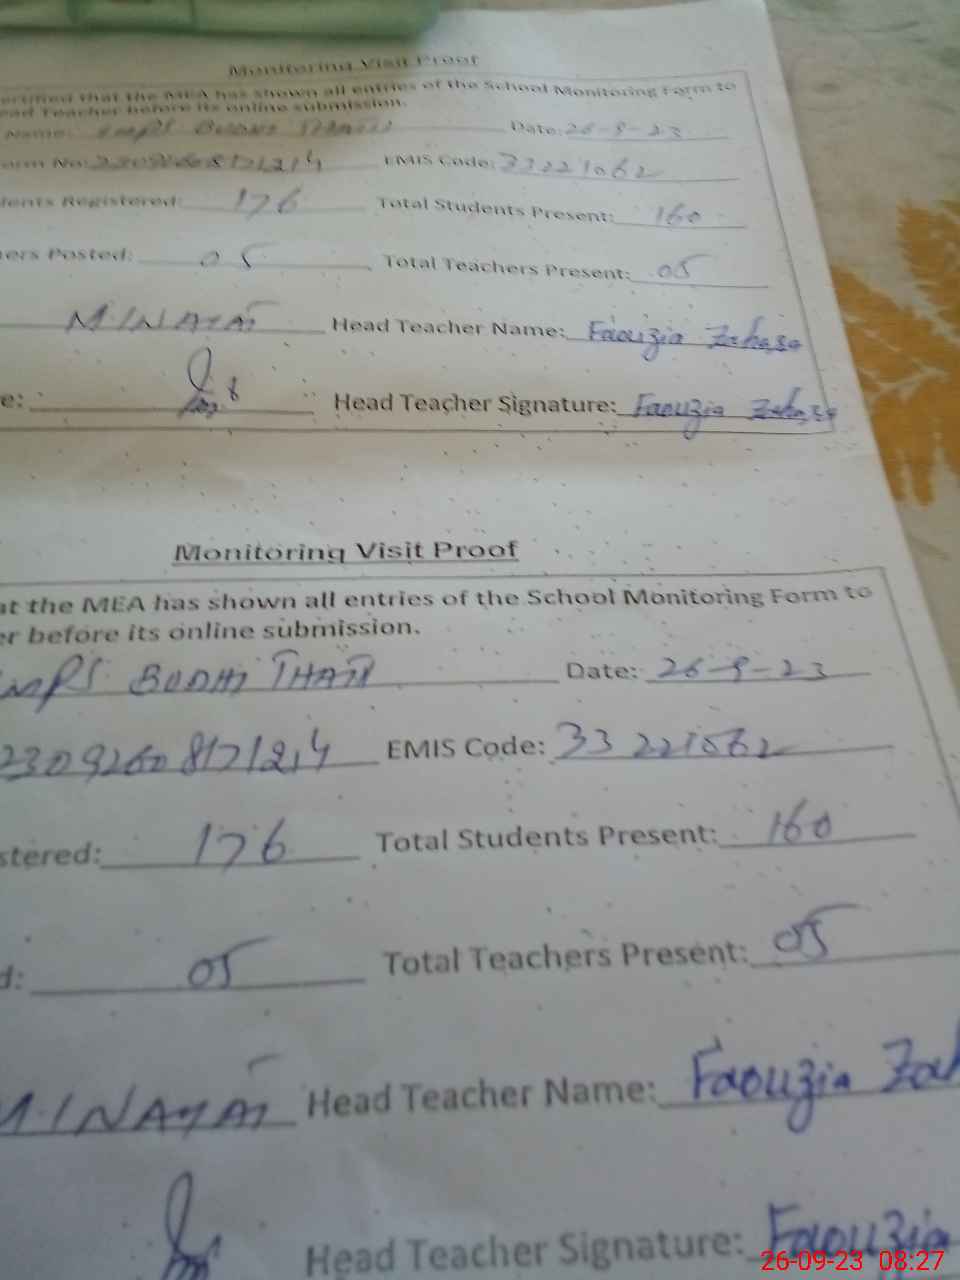 Monitoring Visit Proof
ertified that the MEA has shown all entries of the School Monitoring Form to
ead Teacher before its online submission.
Name: GMPS BUDHI THATI Date: 26-9-23
orm No: 23092608171214 EMIS Code: 33221062
dents Registered: 176 Total Students Present: 160
ers Posted: 05 Total Teachers Present: 05
M. INAYAT Head Teacher Name: Faouzia Zahara
e: Head Teacher Signature: Faouzia Zahara
Monitoring Visit Proof
at the MEA has shown all entries of the School Monitoring Form to
er before its online submission.
GMPS BUDHI THATI Date: 26-9-23
23092608171214 EMIS Code: 33221062
stered: 176 Total Students Present: 160
d: 05 Total Teachers Present: 05
M. INAYAT Head Teacher Name: Faouzia Zah
Head Teacher Signature: Faouzia
26-09-23 08:27